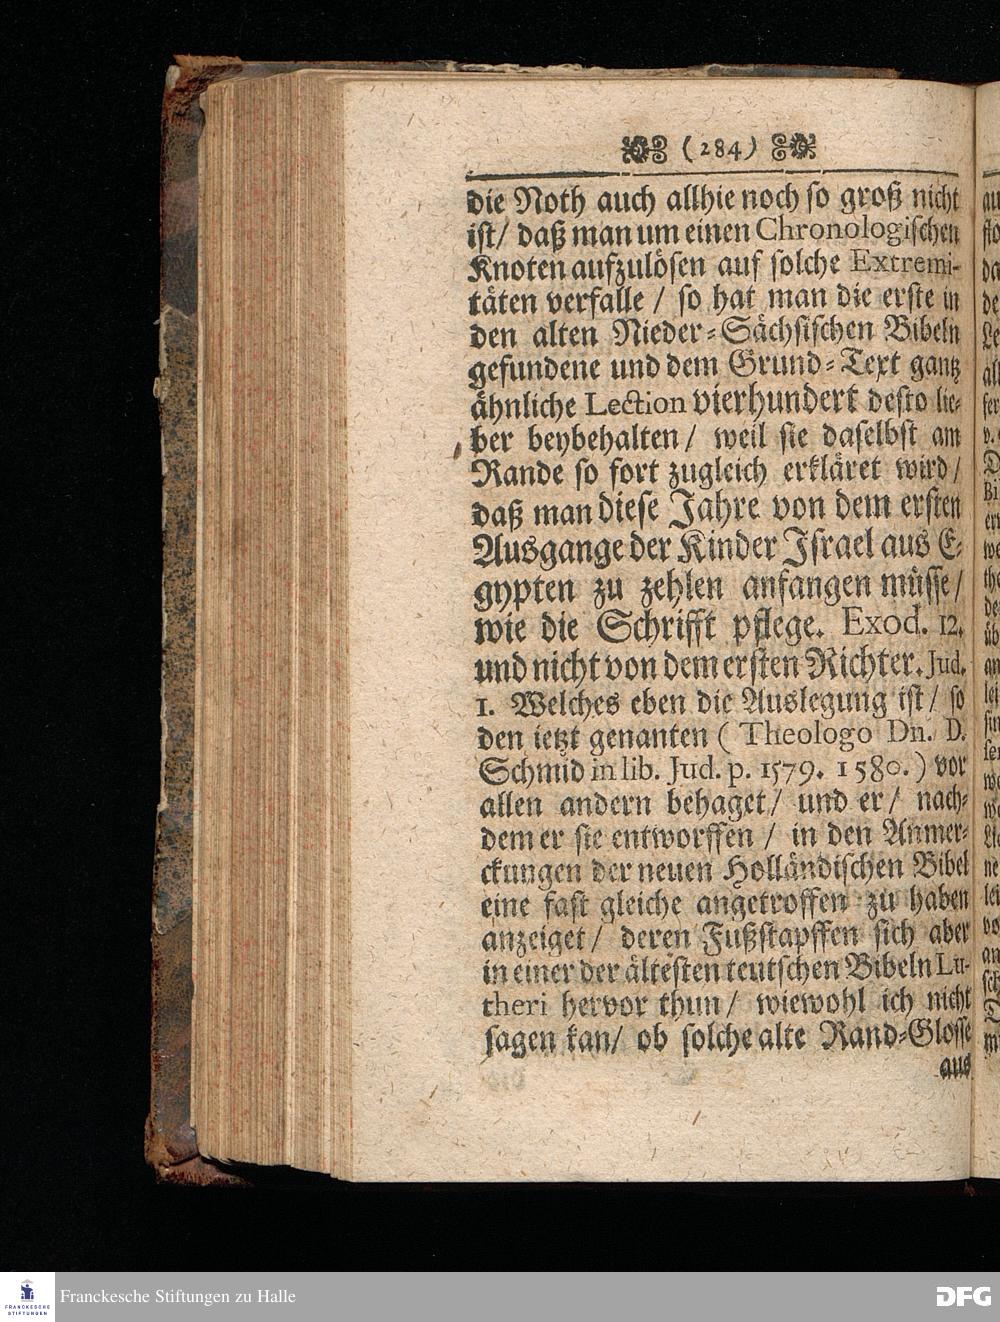 (284)
die Noth auch allhie noch so groß nicht
ist/ daß man um einen Chronologischen
Knoten aufzulösen auf solche Extremi-
täten verfalle / so hat man die erste in
den alten Nieder-Sächsischen Bibeln
gefundene und dem Grund-Text gantz
ähnliche Lection vierhundert desto lie-
ber beybehalten/ weil sie daselbst am
Rande so fort zugleich erkläret wird/
daß man diese Jahre von dem ersten
Ausgange der Kinder Israel aus E-
gypten zu zehlen anfangen müsse/
wie die Schrifft pflege. Exod. 12.
und nicht von dem ersten Richter. Jud.
1. Welches eben die Auslegung ist/ so
den ietzt genanten ( Theologo Dn. D.
Schmid in lib. Jud. p. 1579. 1580. ) vor
allen andern behaget/ und er/ nach-
dem er sie entworffen / in den Anmer-
ckungen der neuen Holländischen Bibel
eine fast gleiche angetroffen zu haben
anzeiget/ deren Fußstapffen sich aber
in einer der ältesten teutschen Bibeln Lu-
theri hervor thun/ wiewohl ich nicht
sagen kan/ ob solche alte Rand-Glosse
aus
FRANCKESCHE
STIFTUNGEN
Franckesche Stiftungen zu Halle
DFG